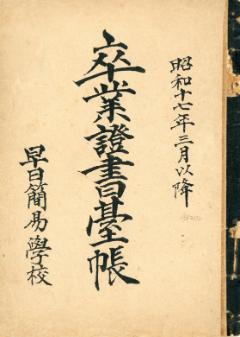 昭和十七年三月以降
卒業證書臺帳
早日簡易學校